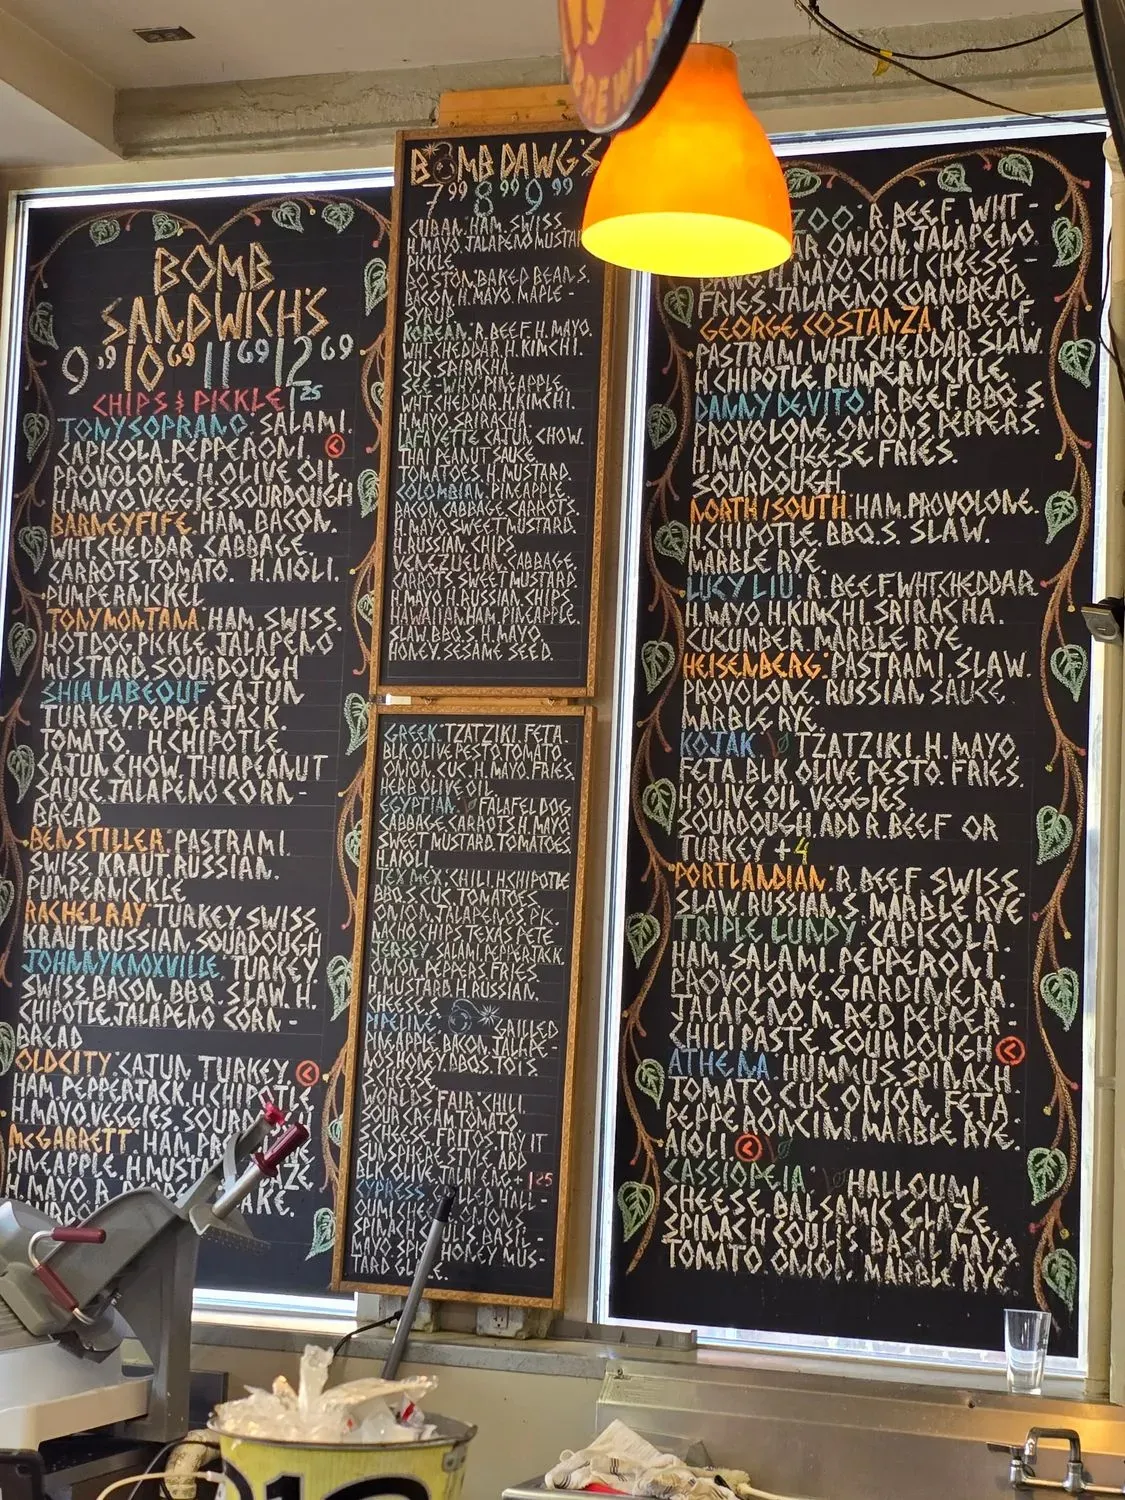 BREWI
BOMB
SANDWICH'S
9.99 10.69 11.69 12.69
CHIPS & PICKLE 1.25
TONY SOPRANO: SALAMI.
CAPICOLA. PEPPERONI.
PROVOLONE. H. OLIVE OIL.
H.MAYO. VEGGIES SOURDOUGH
BARNEY FIFE. HAM. BACON.
WHT CHEDDAR. CABBAGE.
CARROTS. TOMATO. H.AIOLI.
PUMPERNICKEL
TONY MONTANA. HAM. SWISS.
HOTDOG. PICKLE. JALAPENO
MUSTARD. SOURDOUGH
SHIA LABEOUF: CAJUN
TURKEY. PEPPER JACK.
TOMATO. H.CHIPOTLE.
CAJUN CHOW. THIAPEANUT
SAUCE. JALAPENO CORN-
BREAD
BEN STILLER: PASTRAMI.
SWISS. KRAUT. RUSSIAN.
PUMPERNICKLE
RACHEL RAY: TURKEY. SWISS.
KRAUT. RUSSIAN. SOURDOUGH
JOHNNY KNOXVILLE. TURKEY.
SWISS. BACON. BBQ. SLAW. H.
CHIPOTLE. JALAPENO CORN-
BREAD
OLD CITY: CAJUN TURKEY.
HAM. PEPPERJACK. H.CHIPOTLE
H.MAYO. VEGGIES.
McGARRETT: HAM.
PINEAPPLE.
H.MAYO.
BOMB DAWG'S
7.99 8.99 9.99
CUBAN: HAM. SWISS.
H.MAYO. JALAPENO MUSTARD
PICKLE
BOSTON: BAKED BEANS.
BACON. H.MAYO. MAPLE-
SYRUP
KOREAN: R.BEEF. H.MAYO.
WHT CHEDDAR. H.KIMCHI.
CUS. SRIRACHA
SEE-WHY: PINEAPPLE.
WHT CHEDDAR. H.KIMCHI.
H.MAYO. SRIRACHA.
LAFAYETTE: CAJUN CHOW.
THAI PEANUT SAUCE.
TOMATOES. H.MUSTARD
COLOMBIAN: PINEAPPLE.
BACON. CABBAGE. CARROTS.
H.MAYO. SWEET MUSTARD.
H.RUSSIAN. CHIPS
VENEZUELAN. CABBAGE.
CARROTS. SWEET MUSTARD.
H.MAYO. H.RUSSIAN. CHIPS
HAWAIIAN: HAM. PINEAPPLE.
SLAW. BBQ.S. H.MAYO.
HONEY. SESAME SEED.
GREEK: TZATZIKI. FETA.
BLK OLIVE. PESTO. TOMATO.
ONION. CUC. H.MAYO. FRIES.
HERB OLIVE OIL
EGYPTIAN: FALAFEL DOG
CABBAGE. CARROTS. H.MAYO.
SWEET MUSTARD. TOMATOES.
H.AIOLI
TEX MEX: CHILI. H.CHIPOTLE
BBQ.S. CUS. TOMATOES.
ONION. JALAPENOS PIK.
NACHO CHIPS. TEXAS PETE
JERSEY: SALAMI. PEPPERJACK.
ONION. PEPPERS. FRIES.
H.MUSTARD. H.RUSSIAN.
CHEESE.
PIPELINE: GRILLED
PINEAPPLE. BACON. JALAPE-
NOS. HONEY. BBQ S.
S.CHEESE
WORLDS FAIR: CHILI.
SOUR CREAM. TOMATO
S.CHEESE. FRITOS. TRY IT
SUNSPHERE STYLE. ADD
BLK OLIVE. + 1.25
CYPRESS: HALL-
OUMI
SPINACH COULIS. BASIL-
MAYO. HONEY MUS-
TARD
ZOO: R.BEEF. WHT-
ONION. JALAPENO
H.MAYO. CHILI CHEESE-
FRIES. JALAPENO CORNBREAD
GEORGE COSTANZA. R.BEEF.
PASTRAMI. WHT CHEDDAR. SLAW.
H.CHIPOTLE. PUMPERNICKLE
DANNY DEVITO: R.BEEF. BBQ.S.
PROVOLONE. ONIONS. PEPPERS.
H.MAYO. CHEESE FRIES.
SOURDOUGH
NORTH/SOUTH: HAM. PROVOLONE.
H.CHIPOTLE. BBQ.S. SLAW.
MARBLE RYE
LUCY LIU: R.BEEF. WHTCHEDDAR
H.MAYO. H.KIMCHI. SRIRACHA.
CUCUMBER. MARBLE RYE
HEISENBERG: PASTRAMI. SLAW.
PROVOLONE. RUSSIAN SAUCE
MARBLE RYE
KOJAK TZATZIKI. H.MAYO.
FETA. BLK OLIVE. PESTO. FRIES.
H.OLIVE OIL. VEGGIES.
SOURDOUGH. ADD R.BEEF OR
TURKEY +4
PORTLANDIAN: R.BEEF. SWISS.
SLAW. RUSSIAN.S. MARBLE RYE
TRIPLE LUNDY: CAPICOLA.
HAM. SALAMI. PEPPERONI.
PROVOLONE. GIARDINERA.
JALAPENO.M. RED PEPPER-
CHILI PASTE. SOURDOUGH
ATHENA: HUMMUS. SPINACH
TOMATO. CUC. ONION. FETA
PEPPERONCINI. MARBLE RYE.
AIOLI
CASSIOPEIA: HALLOUMI
CHEESE. BALSAMIC GLAZE.
SPINACH COULIS. BASIL MAYO.
TOMATO. ONION. MARBLE RYE